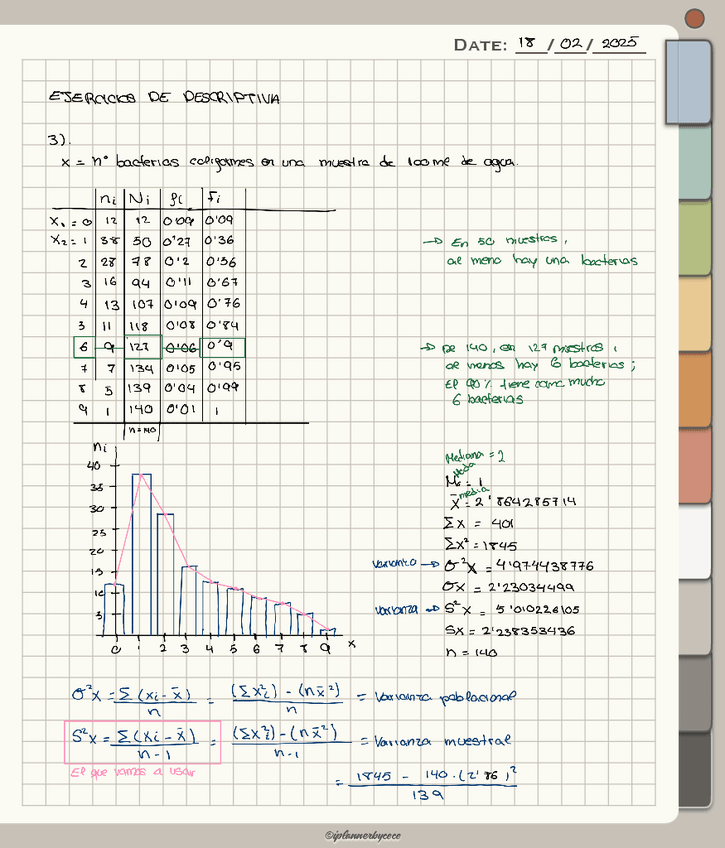 DATE: 18 / 02 / 2025
EJERCICIOS DE DESCRIPTIVA
3).
x = nº bacterias coliformes en una muestra de 100 ml de agua.
ni Ni fi Fi
X₁ = 0 12 12 0'09 0'09
X₂ = 1 38 50 0'27 0'36
2 28 78 0'2 0'56
3 16 94 0'11 0'67
4 13 107 0'09 0'76
5 11 118 0'08 0'84
6 9 127 0'06 0'9
7 7 134 0'05 0'95
8 5 139 0'04 0'99
9 1 140 0'01 1
n = 140
→ En 50 muestras,
al meno hay una bacterias
→ De 140, en 127 muestras,
al menos hay 6 bacterias;
El 90% tiene como mucho
6 bacterias
ni
40
35
30
25
20
15
10
5
0 1 2 3 4 5 6 7 8 9 x
Mediana = 2
Moda
Mo = 1
media
x̄ = 2'864285714
Σx = 401
Σx² = 1845
varianza → σ²x = 4'974438776
σx = 2'23034499
varianza → S²x = 5'010226105
Sx = 2'238353436
n = 140
σ²x = Σ(xi - x̄) / n = (Σx²i) - (nx̄²) / n = varianza poblacional
S²x = Σ(xi - x̄) / n-1 = (Σx²i) - (nx̄²) / n-1 = varianza muestral
El que vamos a usar
= 1845 - 140·(2'86)² / 139
©iplannerbycece